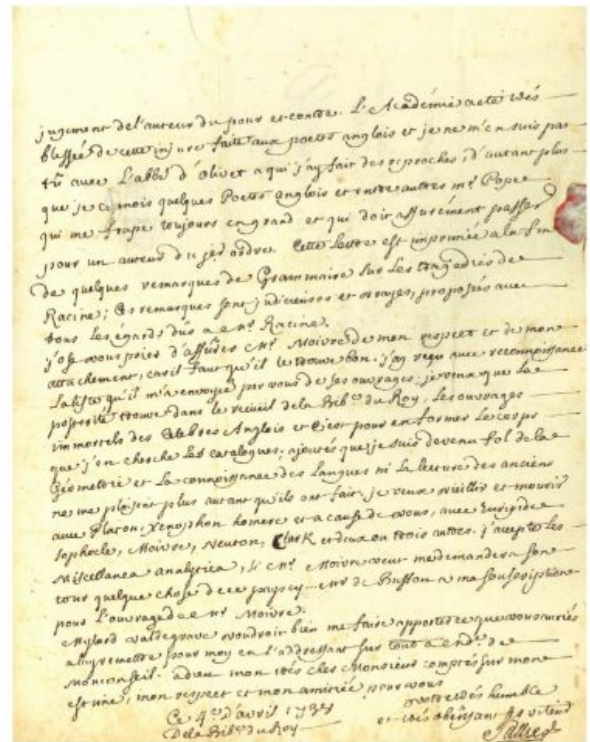 jugement de l'auteur du pour et contre. L'Académie a eté très
blessée de cette injure faite aux poetes anglois et je ne m'en suis pas
tû avec L'abbé d'Olivet a qui j'ay fait des reproches, d'autant plus
que je connois quelques Poetes anglois et entre autres mr. Pope
qui me frape toujours en grand et qui doit assurément passer
pour un auteur du 1er ordre. Cette Lettre est imprimée a la fin
de quelques remarques de Grammaire sur Les tragedies de
Racine; Ces remarques sont judicieuses et vrayes, proposées avec
tous Les égards dûs a Mr. Racine.
j'ose vous prier d'assurer Mr. Moivre de mon respect et de mon
attachement, car il faut qu'il le trouve bon. j'ay reçu avec reconnoissance
La Liste qu'il m'a envoyée par vous de ses ouvrages; je veux que La
posterité trouve dans le recueil de la Bib. du Roy, Les ouvrages
immortels des Celebres Anglois et C'est pour en former Le corps
que j'en cherche Les catalogues; ajoutés que je suis devenu fol de la
Géometrie et La connoissance des Langues ni La lecture des anciens
ne me plaisent plus autant qu'ils ont fait; je veux vieillir et mourir
avec Platon, Xenophon homere et a cause de vous, avec Euripide
sophocle, Moivre, Neuton, Clark et deux ou trois autres. j'accepte Les
Miscellanea analytica, si Mr. Moivre veut me demander a son
tour quelque chose de ce pays cy. Mr. de Buffon a ma souscription
pour L'ouvrage de Mr. Moivre.
Mylord Valdegrave voudroit bien me faire apporter ce que vous auriés
a luy remettre pour moy en l'addressant sur tout a de
Monconseil. adieu mon très cher Monsieur comptés sur mon
estime, mon respect et mon amitiée pour vous
votre très humble
Ce 4. d'avril 1738
et très obéissant serviteur
De la Bib. du Roy
Sallier